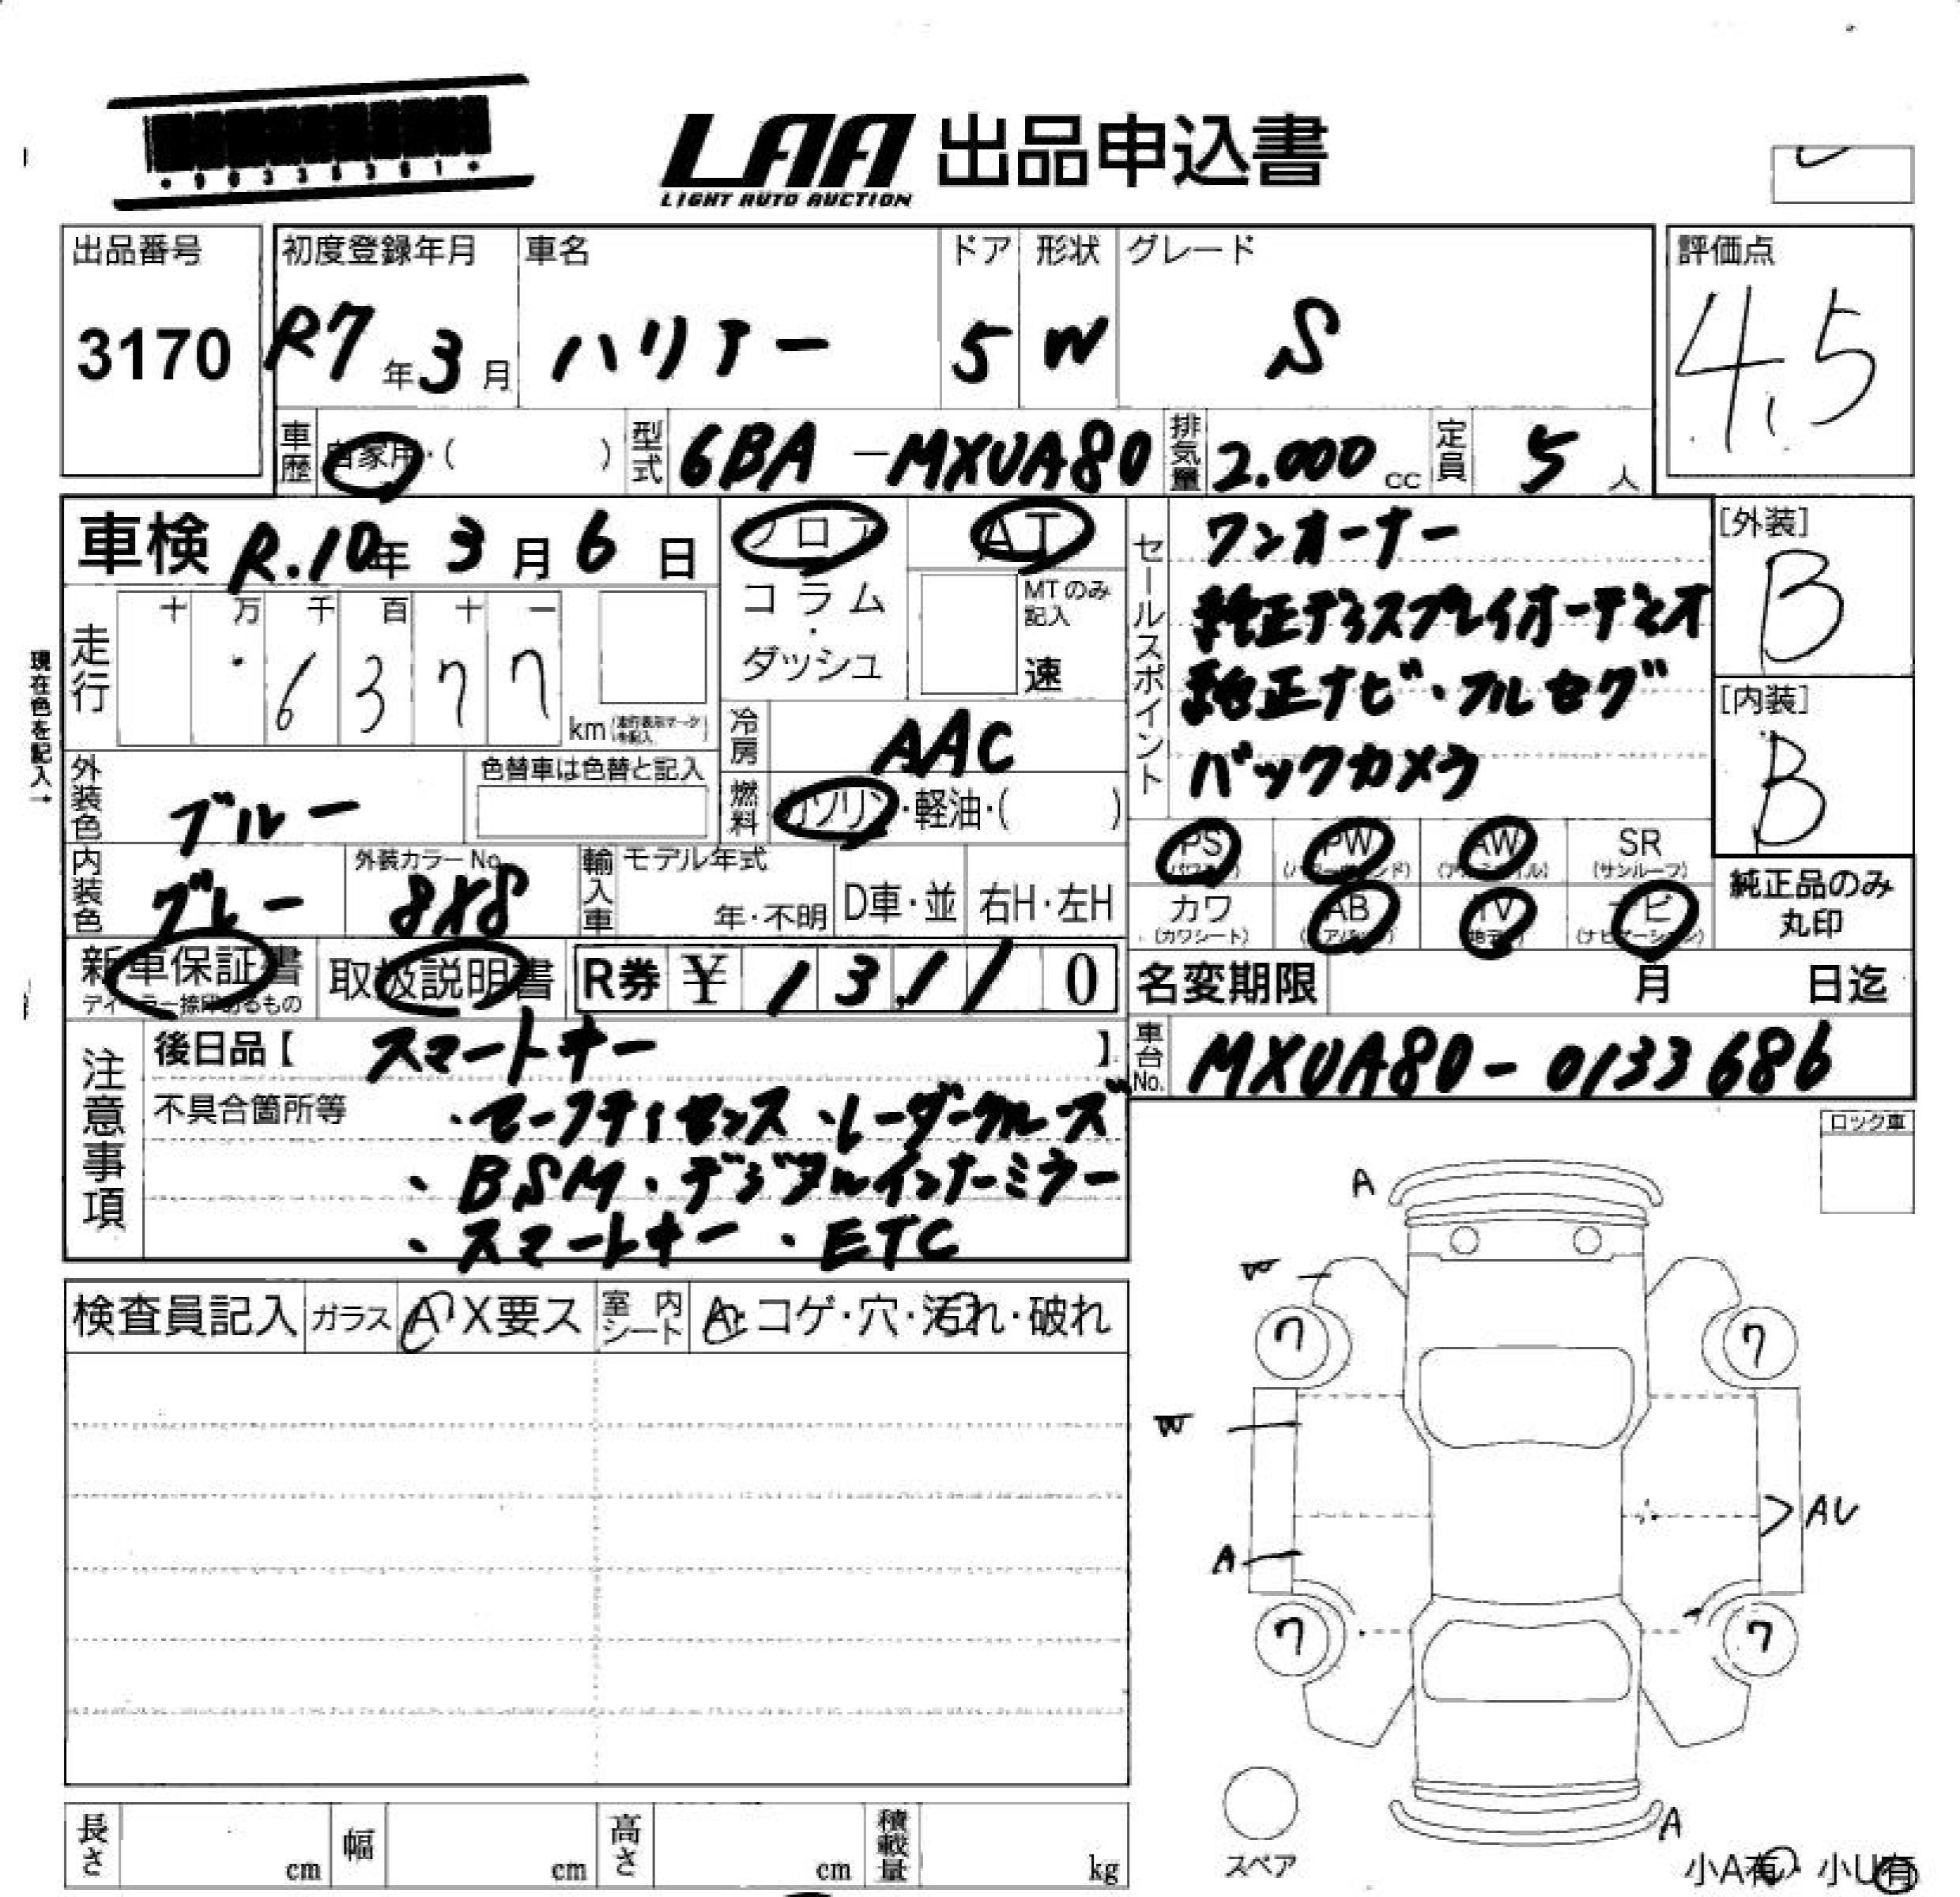 LAA 出品申込書
LIGHT AUTO AUCTION
出品番号
3170
初度登録年月
R7年3月
車名
ハリアー
ドア
5
形状
W
グレード
S
評価点
4.5
車歴
自家用・( )
型式
6BA-MXUA80
排気量
2.000cc
定員
5人
車検 R.10年3月6日
フロア
コラム
・
ダッシュ
AT
MTのみ
記入
速
セールスポイント
ワンオーナー
純正ディスプレイオーディオ
純正ナビ・フルセグ
バックカメラ
[外装]
B
[内装]
B
現在色を記入→
走行
十 万 千 百 十 一
6377
km
冷房
AAC
外装色
ブルー
色替車は色替と記入
燃料
ガソリン・軽油・( )
PS
PW
AW
SR
(サンルーフ)
カワ
(カワシート)
AB
TV
ナビ
(ナビゲーション)
純正品のみ
丸印
内装色
グレー
外装カラーNo.
8X8
輸入車
モデル年式
年・不明
D車・並
右H・左H
新車保証書
取扱説明書
R券 ¥ 13,110
名変期限 月 日迄
車台No.
MXUA80-0133686
注意事項
後日品【 スマートキー 】
不具合箇所等
・セーフティセンス・レーダークルーズ
・BSM・デジタルインナーミラー
・スマートキー・ETC
ロック車
検査員記入
ガラス
A・X要ス
室内
シート
A・コゲ・穴・汚れ・破れ
A
W
7
7
W
AU
A
7
7
A
スペア
小A有・小U有
長さ cm
幅 cm
高さ cm
積載量 kg